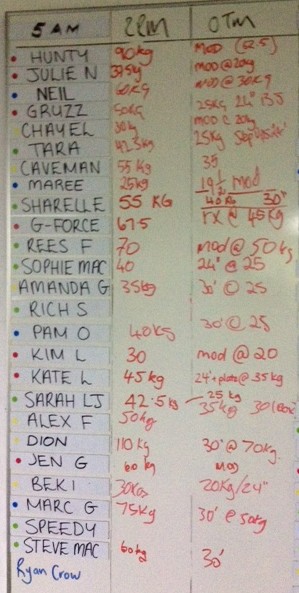 5 AM 2RM OTM
HUNTY 90kg MOD (52.5)
JULIE N 37.5kg MOD@20kg
NEIL 60kg MOD @ 30kg
GRUZZ 50kg 25KG 24"
CHAYEL 30kg MOD @ 20kg
TARA 42.5kg 25kg
CAVEMAN 55kg 35
MAREE 25kg 19 1/2 Mod
SHARELLE 55 KG 40KG 30"
G-FORCE 67.5 rx @ 45kg
REES F 70 mod@50kg
SOPHIE MAC 40 24" @ 25
AMANDA G 35kg 30' @ 25
RICH S
PAM O 40kg 30' @ 25
KIM L 30 mod @ 20
KATE L 45kg 24"+plate@35kg
SARAH LJ 42.5kg 25kg
ALEX F 50kg 35kg 30
DION 110kg 30' @ 70kg
JEN G 60kg MOD
BEKI 30kgs 20kg/24"
MARC G 75kg 30' @ 50kg
SPEEDY
STEVE MAC 60kg 30'
Ryan Crow